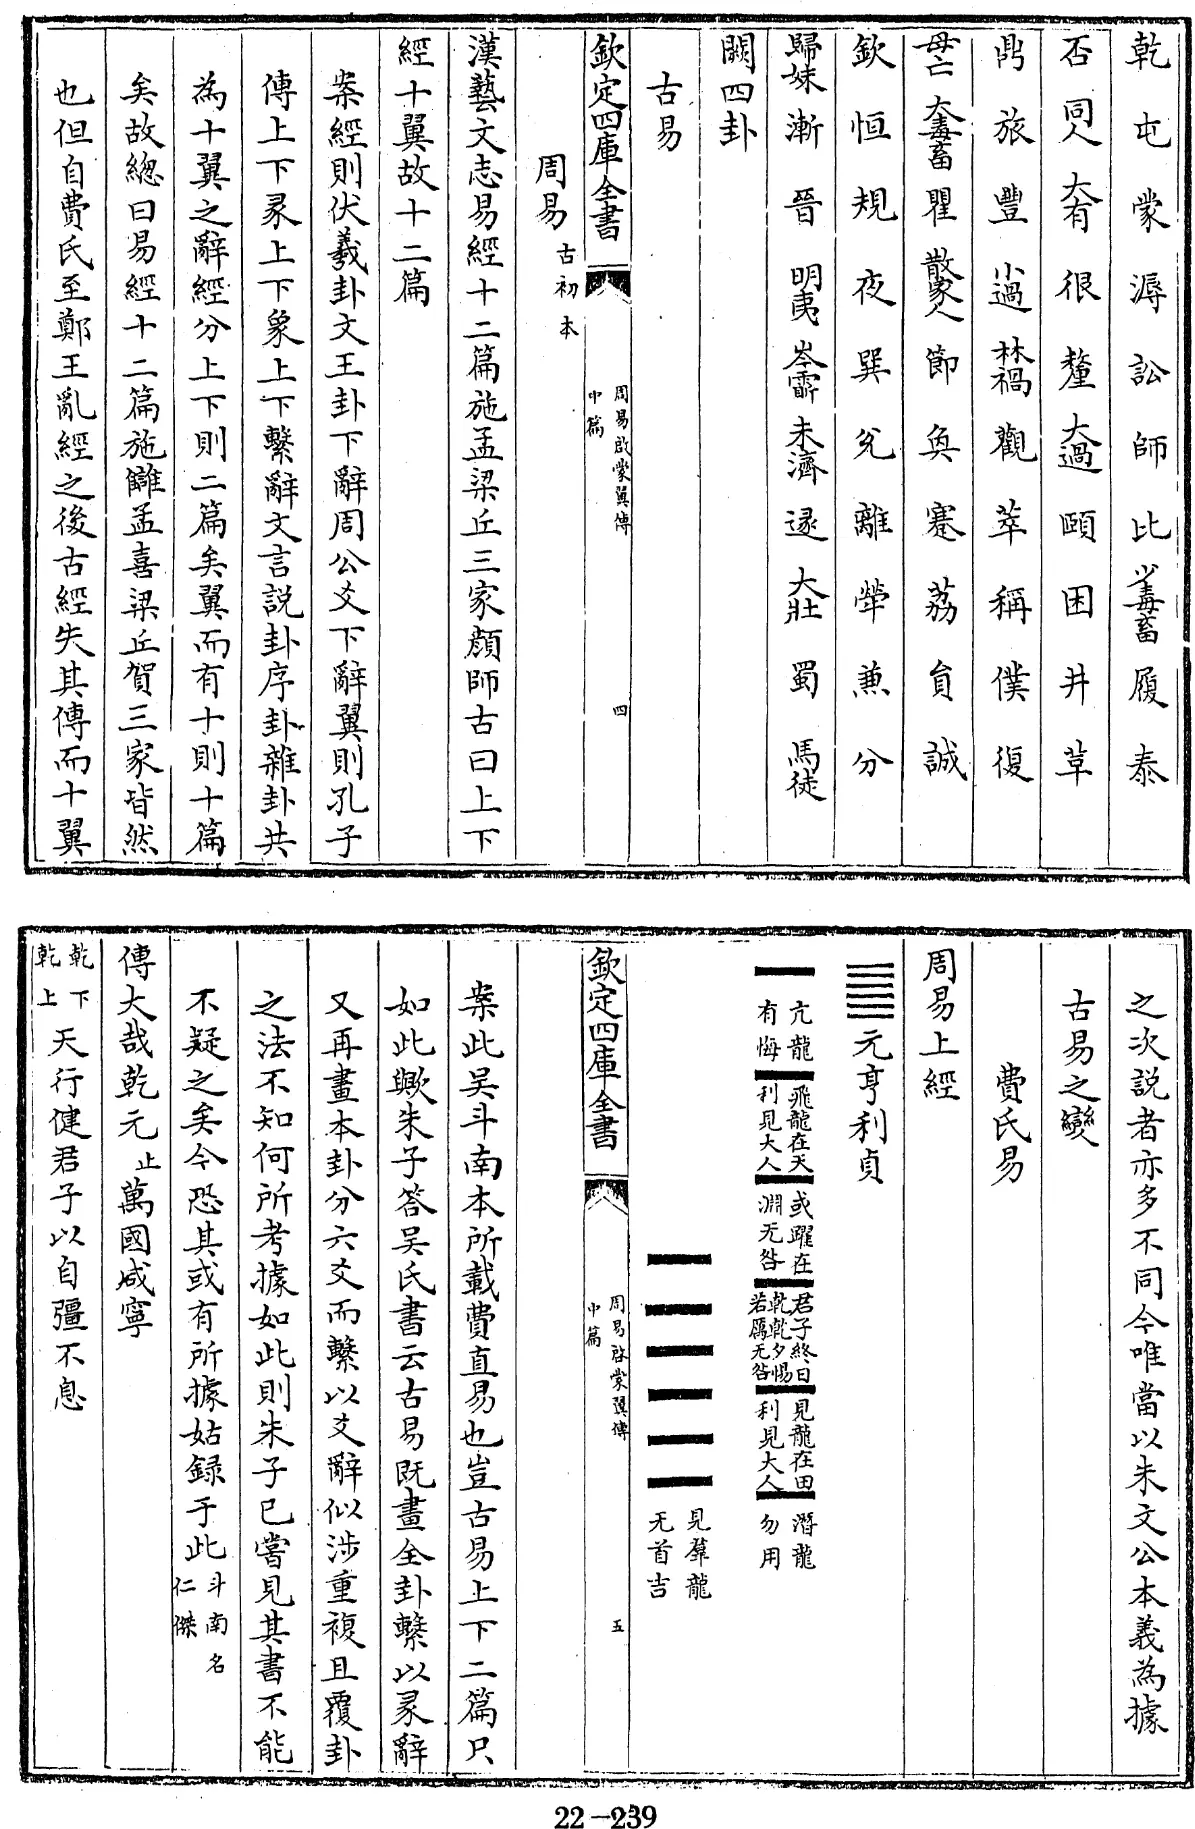 乾 屯 蒙 溽 訟 師 比 小毒畜 履 泰
否 同人 大有 很 釐 大過 頤 困 井 革
鼎 旅 豐 小過 林禍 觀 萃 稱 僕 復
母亡 大毒畜 瞿 散家人 節 奐 蹇 荔 員 諴
欽 恒 規 夜 巽 兊 離 犖 兼 分
歸妹 漸 晉 明夷 岑䨏 未濟 遂 大壯 蜀 馬徒
闕四卦
古易
欽定四庫全書
周易啟蒙翼傳
中篇
四
周易古初本
漢藝文志易經十二篇施孟梁丘三家顔師古曰上下
經十翼故十二篇
案經則伏羲卦文王卦下辭周公爻下辭翼則孔子
傳上下彖上下象上下繫辭文言説卦序卦雜卦共
為十翼之辭經分上下則二篇矣翼而有十則十篇
矣故總曰易經十二篇施讎孟喜梁丘賀三家皆然
也但自費氏至鄭王亂經之後古經失其傳而十翼
之次説者亦多不同今唯當以朱文公本義為據
古易之變
費氏易
周易上經
元亨利貞
亢龍
有悔
飛龍在天
利見大人
或躍在
淵无咎
君子終日
乾乾夕惕
若厲无咎
見龍在田
利見大人
潛龍
勿用
見羣龍
无首吉
欽定四庫全書
周易啓蒙翼傳
中篇
五
案此吴斗南本所載費直易也豈古易上下二篇只
如此歟朱子答吴氏書云古易既畫全卦繫以彖辭
又再畫本卦分六爻而繫以爻辭似涉重複且覆卦
之法不知何所考據如此則朱子已嘗見其書不能
不疑之矣今恐其或有所據姑録于此斗南名仁傑
傳大哉乾元止萬國咸寧
乾下
乾上
天行健君子以自彊不息
22-239